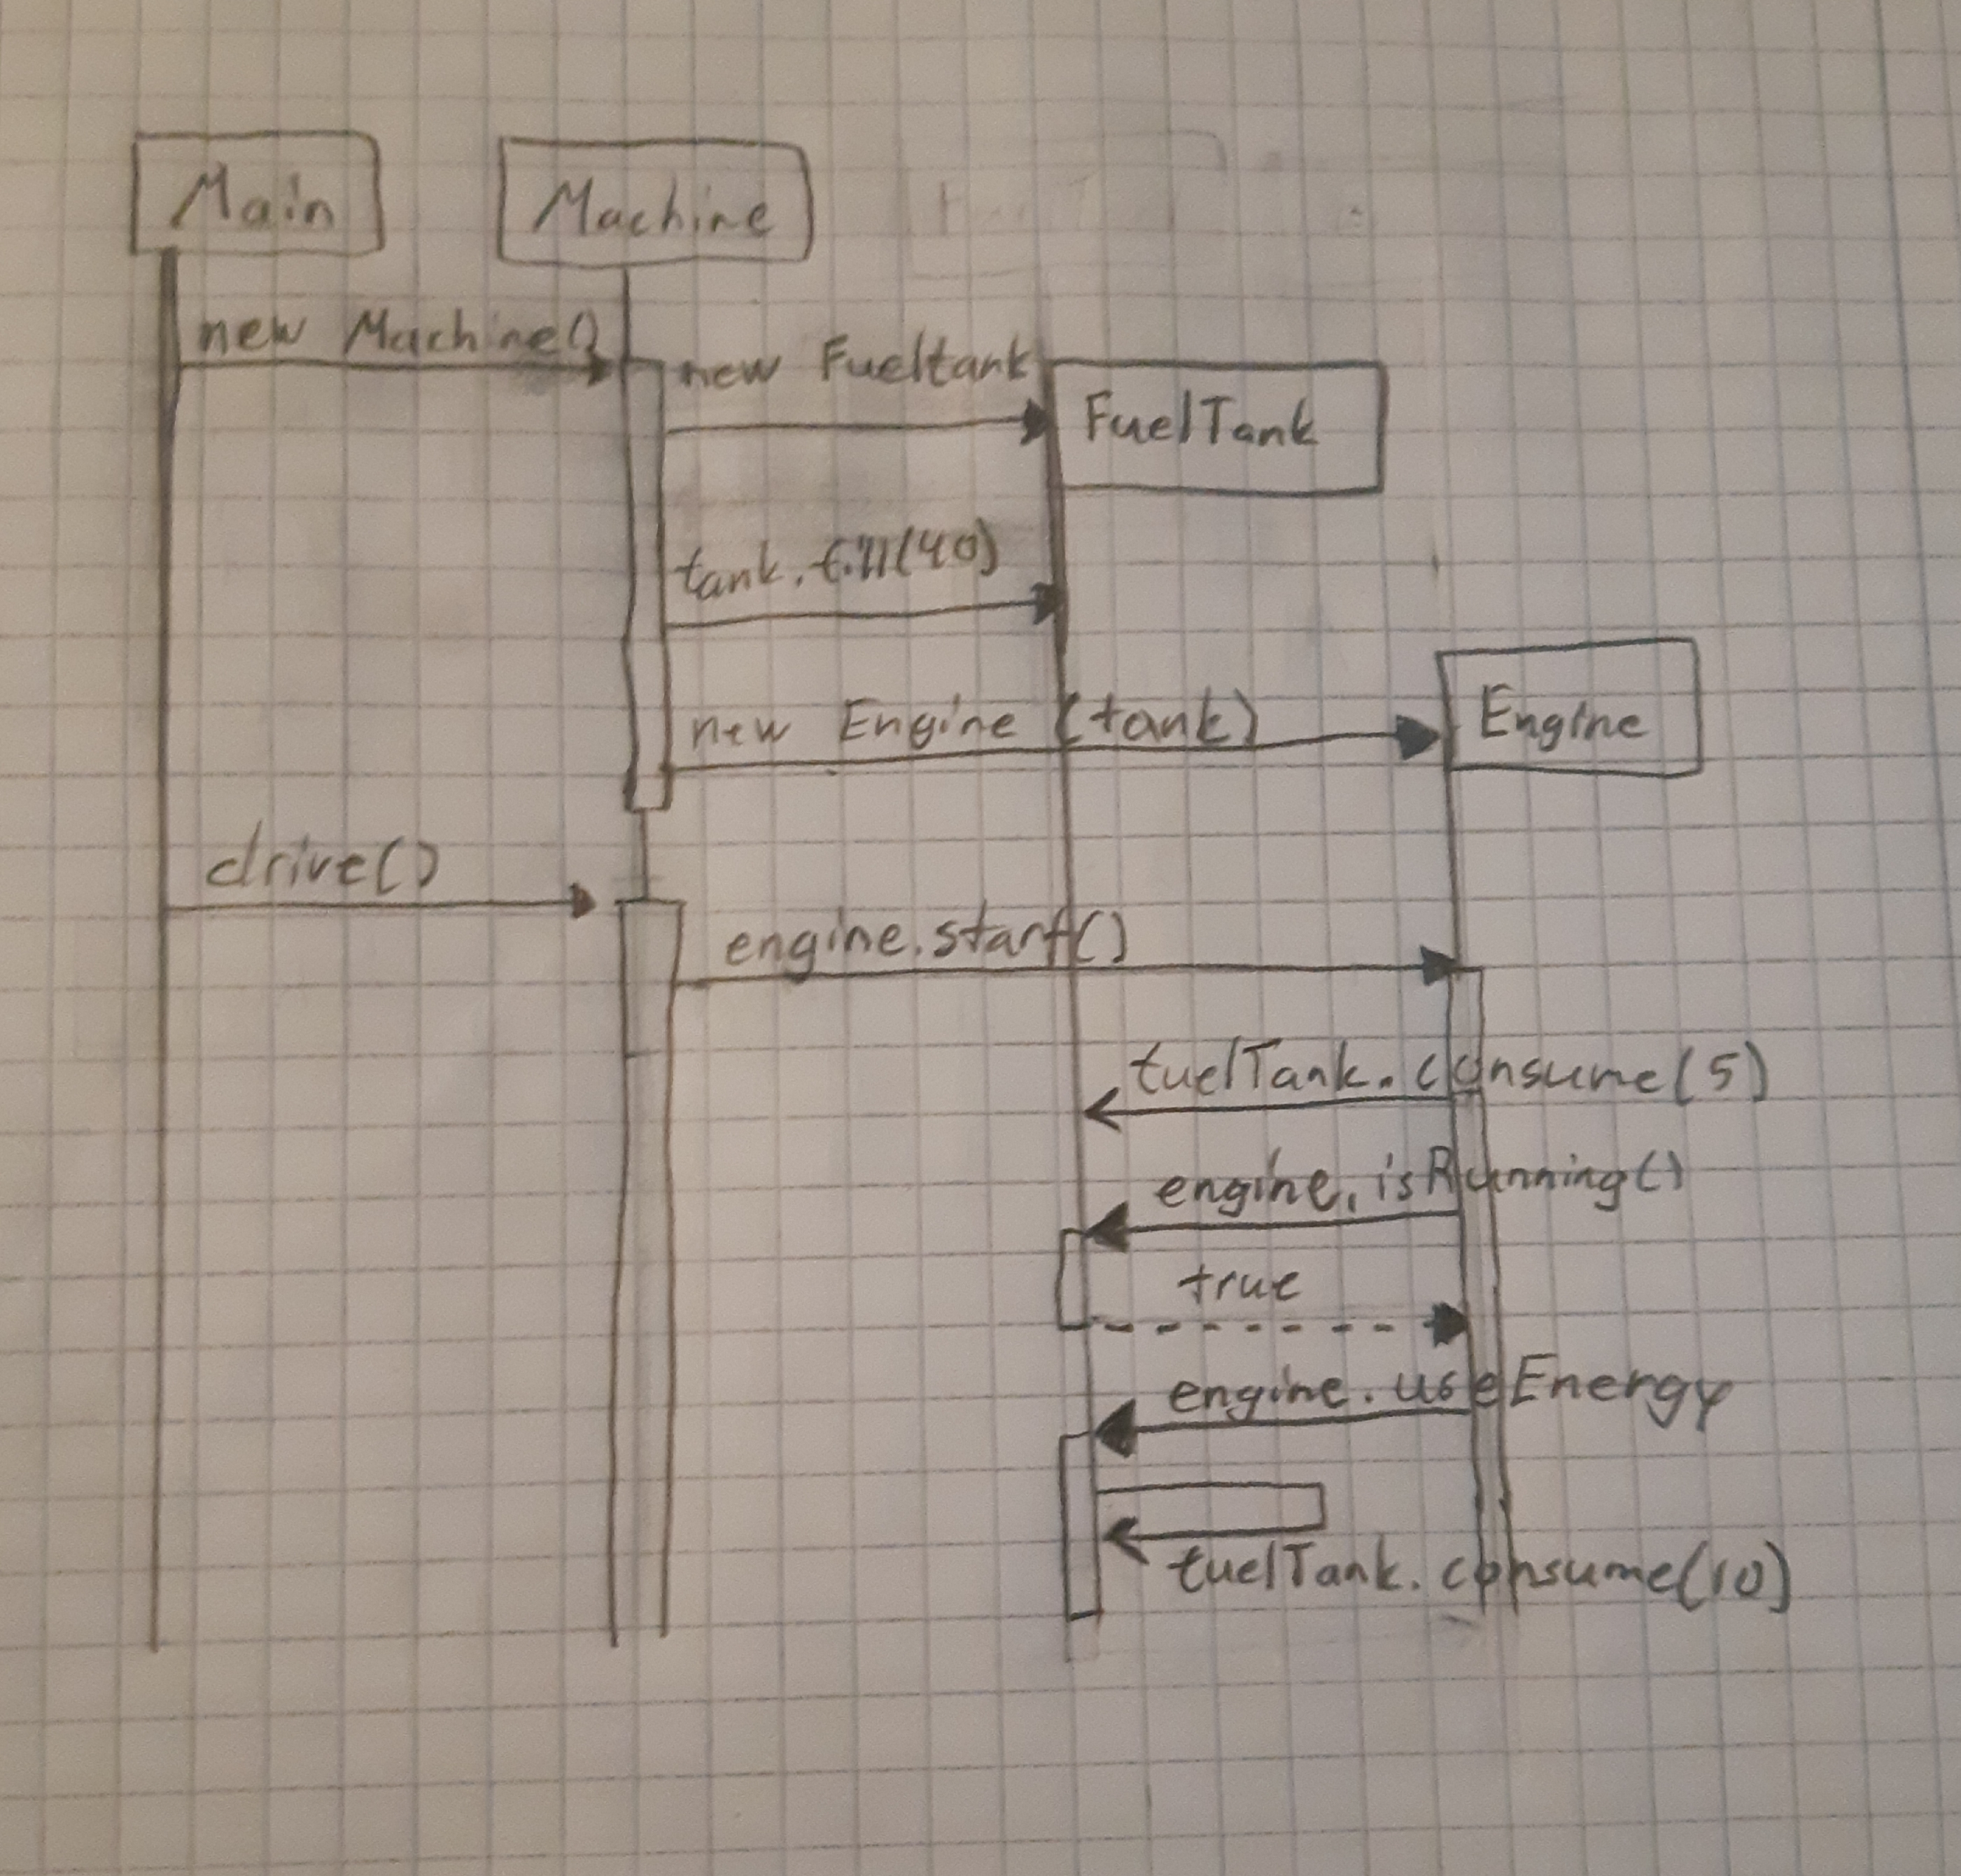 Main
Machine
new Machine()
new Fueltank
FuelTank
tank.fill(40)
new Engine (tank)
Engine
drive()
engine.start()
fuelTank.consume(5)
engine.isRunning()
true
engine.useEnergy
fuelTank.consume(10)